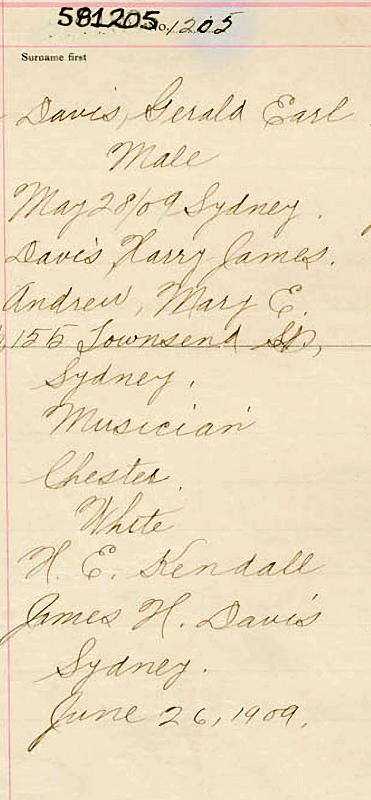 581205 No. 1205
Surname first
Davis, Gerald Earl
Male
May 28/09 Sydney.
Davis, Harry James.
Andrew, Mary E.
155 Townsend St,
Sydney.
Musician
Chester.
White
H. E. Kendall
James H. Davis
Sydney.
June 26, 1909.